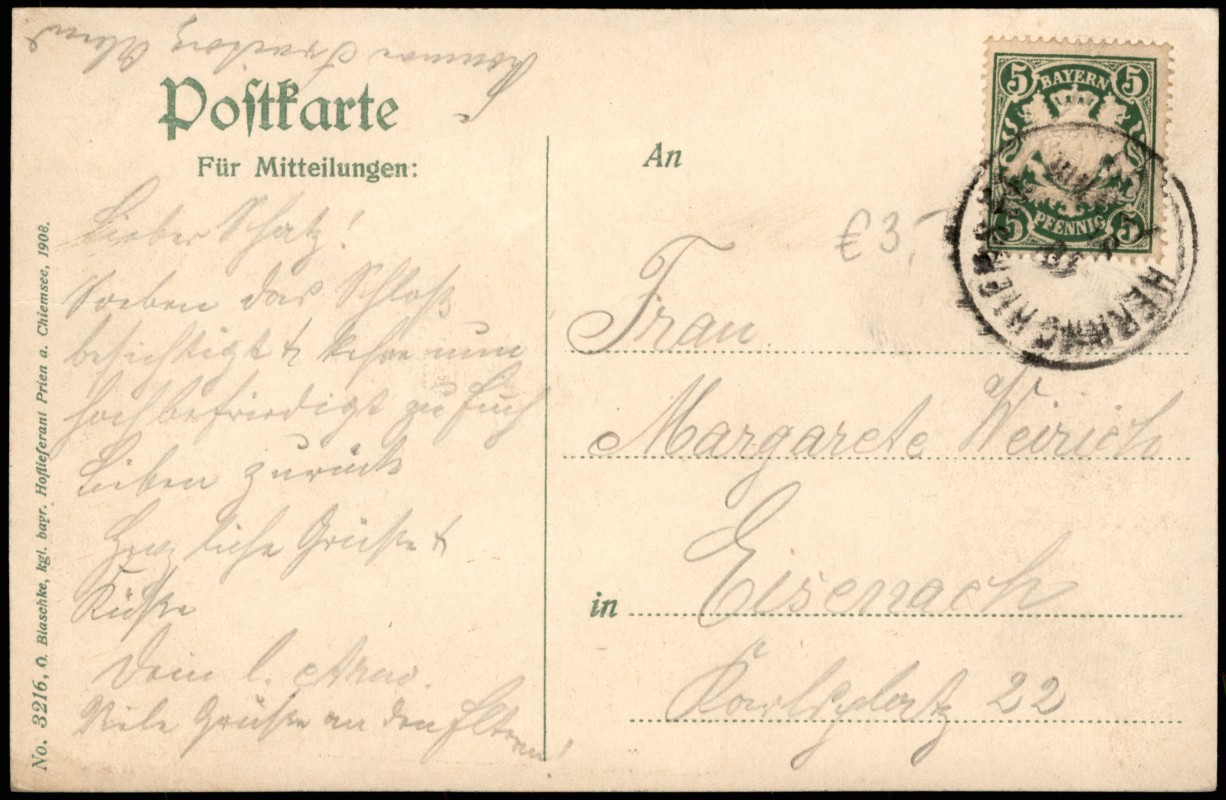 Komme Freitag Abend
Postkarte
Für Mitteilungen:
Lieber Schatz!
Soeben das Schloß
besichtigt & kehre nun
hochbefriedigt zu Euch
Lieben zurück
Herzliche Grüße &
Küße
Dein l. Arno.
Viele Grüße an den Eltern!
No. 3216, O. Blaschke, kgl. bayr. Hoflieferant Prien a. Chiemsee, 1908.
An
€ 3,-
5 BAYERN 5
5 PFENNIG 5
HERRNCHIEMSEE
Frau
Margarete Weirich
in Eisenach
Karlsplatz 22